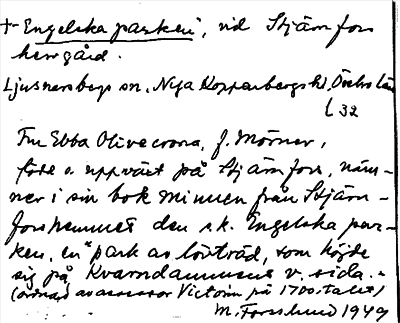 + "Engelska parken", vid Stjärnfors
herrgård.
Ljusnarsbergs sn, Nya Kopparbergs hd, Örebro län
L 32
Fru Ebba Olivecrona, f. Mörner,
född o. uppväxt på Stjärnfors, näm-
ner i sin bok Minnen från Stjärn-
forshemmet den s.k. Engelska par-
ken, en "park av lövträd, som höjde
sig på Kvarndammens v. sida."
(ordnad av assessor Victorin på 1700-talet)
M. Forslund 1949